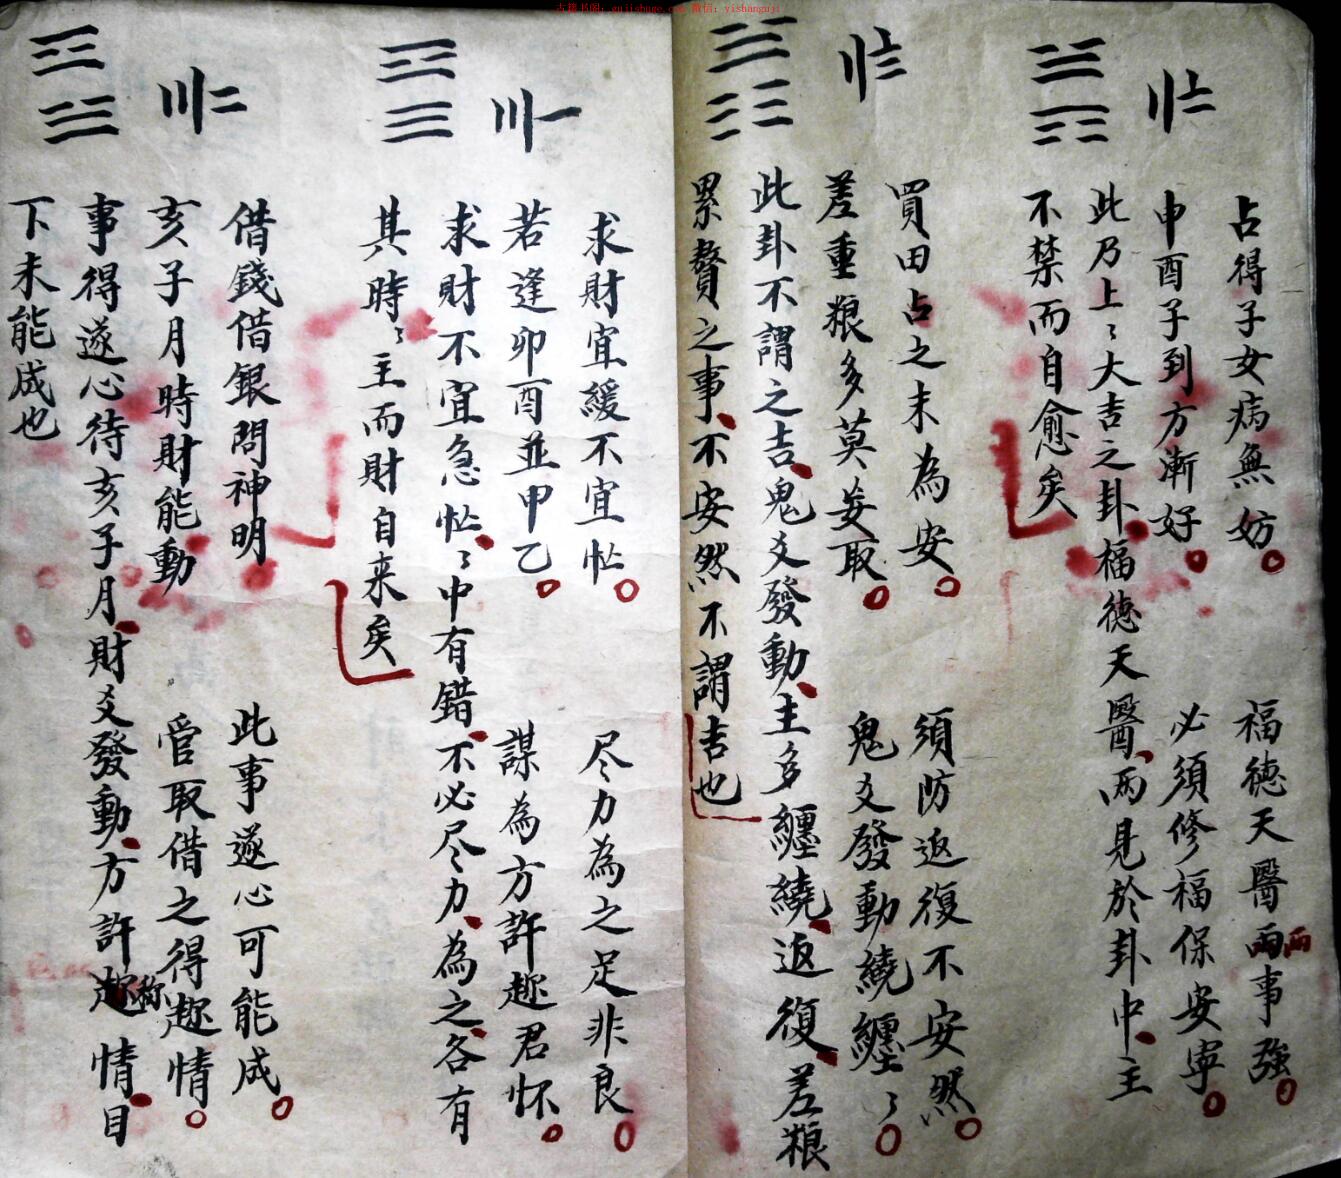 古籍书阁：gujishuge.com 微信：yishanguji
占得子女病無妨 福德天醫両事強
両
申酉子到方漸好 必須修福保安寧
此乃上〻大吉之卦福德天醫両見於卦中主
不禁而自愈矣
買田占之未為安 須防返復不安然
差重粮多莫妄取 鬼爻發動繞纏〻
此卦不謂之吉鬼爻發動主多纏繞返復差粮
累贅之事不安然不謂吉也
求財宜緩不宜忙 尽力為之足非良
若逢卯酉並甲乙 謀為方許趂君怀
求財不宜急忙〻中有錯不必尽力為之各有
其時〻主而財自来矣
借錢借銀問神明 此事遂心可能成
亥子月時財能動 管取借之得趂情
事得遂心待亥子月財爻發動方許趂称情目
下未能成也